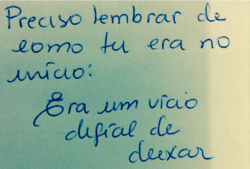 Preciso lembrar de
como tu era no
início:
Era um vício
difícil de
deixar